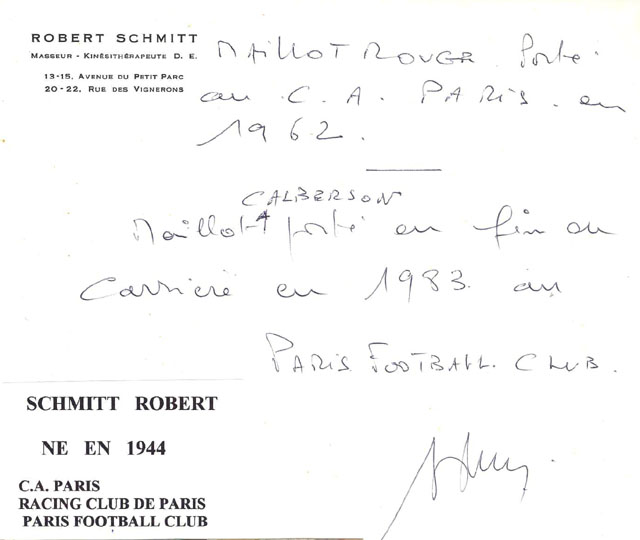 ROBERT SCHMITT
MASSEUR - KINÉSITHÉRAPEUTE D. E.
13-15, AVENUE DU PETIT PARC
20-22, RUE DES VIGNERONS
MAILLOT ROUGE Porté
au C. A. PARIS. en
1962.
CALBERSON
Maillot porté en fin de
Carrière en 1983 au
PARIS FOOTBALL CLUB.
SCHMITT ROBERT
NE EN 1944
C.A. PARIS
RACING CLUB DE PARIS
PARIS FOOTBALL CLUB